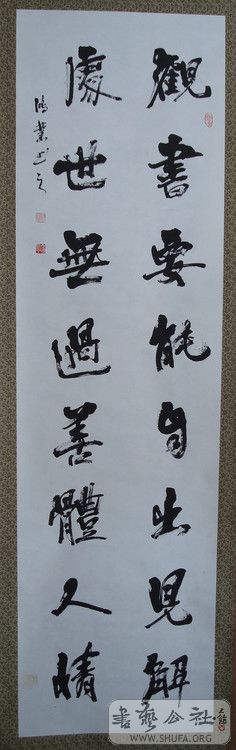 觀書要能自出見解
處世無過善體人情
書藝公社
WWW.SHUFA.ORG